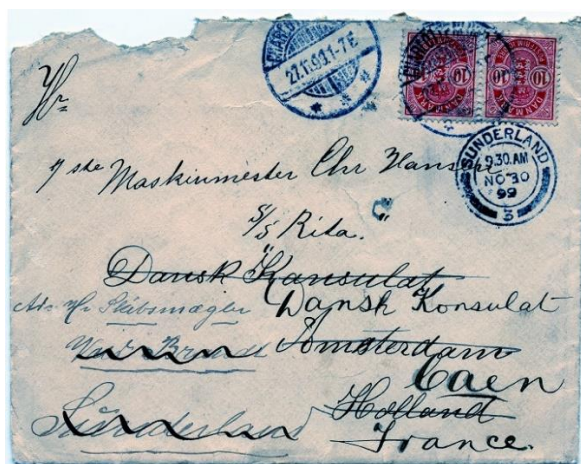 27.11.99.1-7E
DANMARK
10 10
10 10
SUNDERLAND
9.30.AM
NO 30
99
3
Hr
1ste Maskinmester Chr Hansen
S/S "Rita."
Dansk Konsulat
Adr. Hr Skibsmægler
Dansk Konsulat
Amsterdam
Caen
Sunderland
Holland
France.